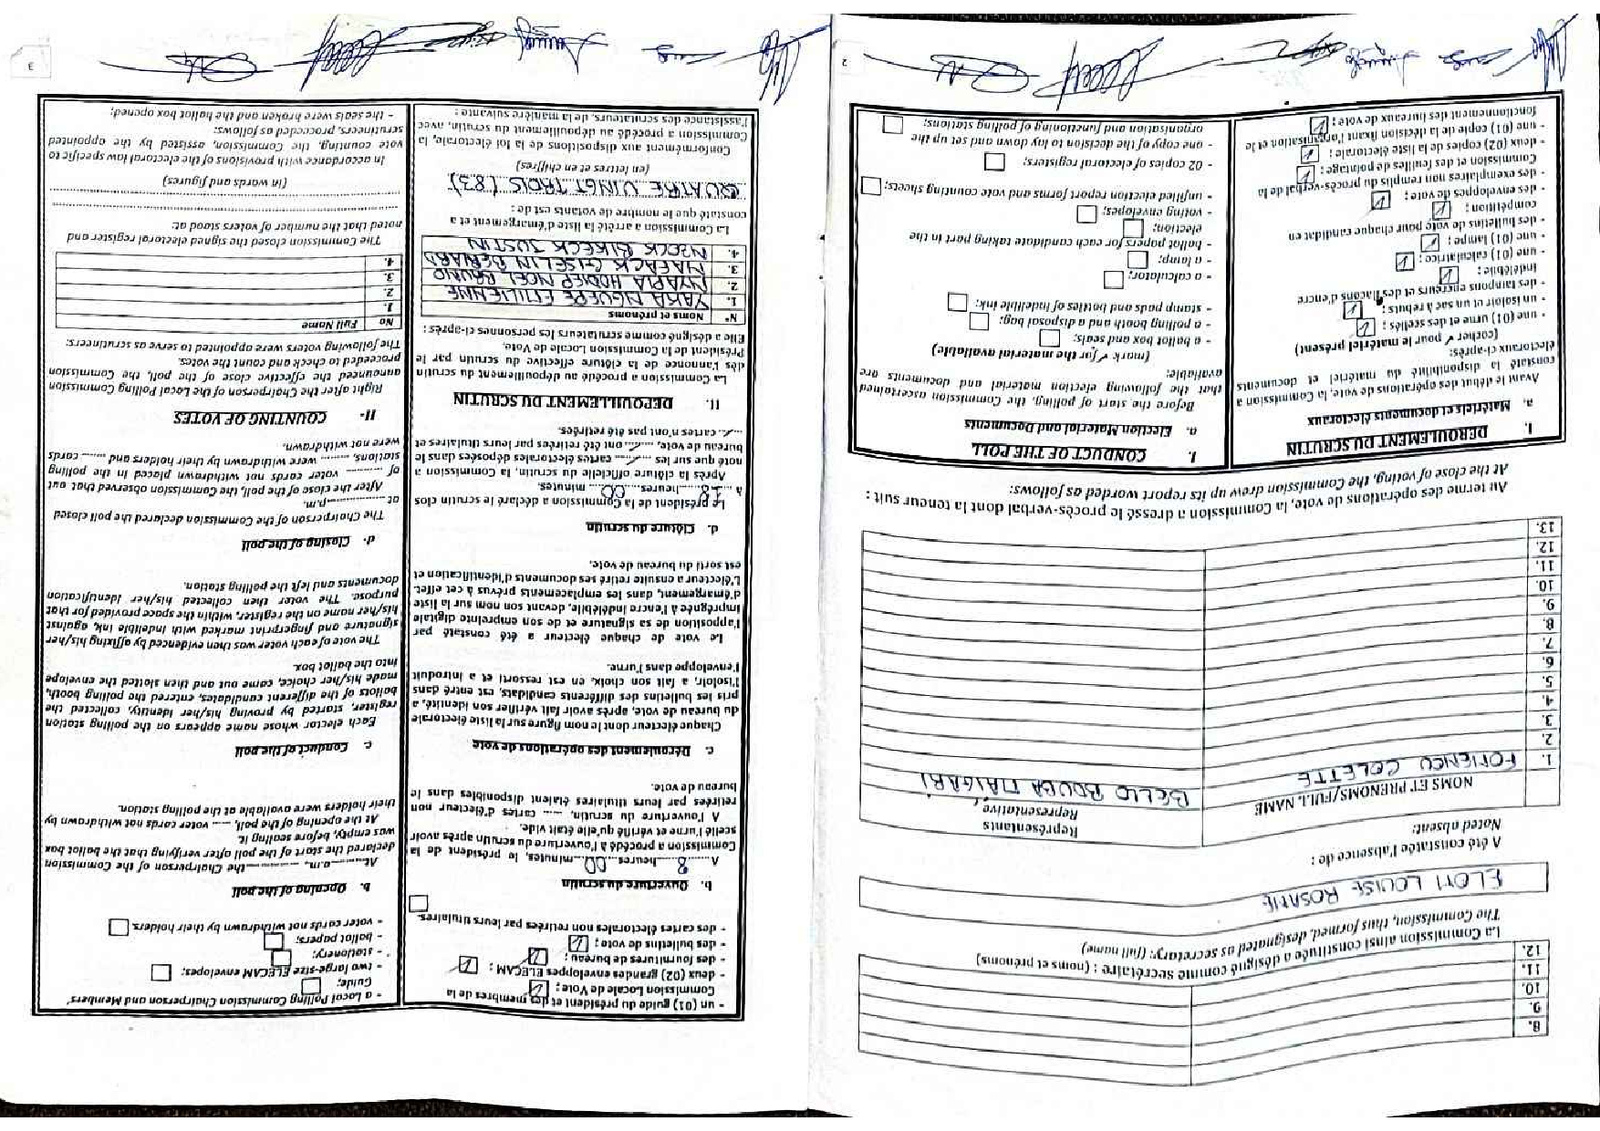 8.
9.
10.
11.
12.
La Commission ainsi constituée a désigné comme secrétaire : (noms et prénoms)
The Commission, thus formed, designated as secretary: (full name)
ELOTI LOUISE ROSATIE
A été constatée l'absence de :
Noted absent:
NOMS ET PRENOMS/FULL NAME
Représentants
Representative
1. FOMENOU COLETTE BELLO BOUBA MAIGARI
2.
3.
4.
5.
6.
7.
8.
9.
10.
11.
12.
13.
Au terme des opérations de vote, la Commission a dressé le procès-verbal dont la teneur suit :
At the close of voting, the Commission drew up its report worded as follows:
I. DEROULEMENT DU SCRUTIN
a. Matériels et documents électoraux
Avant le début des opérations de vote, la Commission a
constaté la disponibilité du matériel et documents
électoraux ci-après:
(cocher ✓ pour le matériel présent)
- une (01) urne et des scellés ;
- un isoloir et un sac à rebuts ;
- des tampons encreurs et des flacons d'encre
indélébile ;
- une (01) calculatrice ;
- une (01) lampe ;
- des bulletins de vote pour chaque candidat en
compétition ;
- des enveloppes de vote ;
- des exemplaires non remplis du procès-verbal de la
Commission et des feuilles de pointage ;
- deux (02) copies de la liste électorale ;
- une (01) copie de la décision fixant l'organisation et le
fonctionnement des bureaux de vote ;
I. CONDUCT OF THE POLL
a. Election Material and Documents
Before the start of polling, the Commission ascertained
that the following election material and documents are
available:
(mark ✓ for the material available)
- a ballot box and seals;
- a polling booth and a disposal bag;
- stamp pads and bottles of indelible ink;
- a calculator;
- a lamp;
- ballot papers for each candidate taking part in the
election;
- voting envelopes;
- unified election report forms and vote counting sheets;
- 02 copies of electoral registers;
- one copy of the decision to lay down and set up the
organisation and functioning of polling stations;
2
- un (01) guide du président et des membres de la
Commission Locale de Vote;
- deux (02) grandes enveloppes ELECAM ;
- des fournitures de bureau ;
- des bulletins de vote ;
- des cartes électorales non retirées par leurs titulaires.
b. Ouverture du scrutin
A 8 heures 00 minutes, le président de la
Commission a procédé à l'ouverture du scrutin après avoir
scellé l'urne et vérifié qu'elle était vide.
A l'ouverture du scrutin, ...... cartes d'électeur non
retirées par leurs titulaires étaient disponibles dans le
bureau de vote.
c. Déroulement des opérations de vote
Chaque électeur dont le nom figure sur la liste électorale
du bureau de vote, après avoir fait vérifier son identité, a
pris les bulletins des différents candidats, est entré dans
l'isoloir, a fait son choix, en est ressorti et a introduit
l'enveloppe dans l'urne.
Le vote de chaque électeur a été constaté par
l'apposition de sa signature et de son empreinte digitale
imprégnée à l'encre indélébile, devant son nom sur la liste
d'émargement, dans les emplacements prévus à cet effet.
L'électeur a ensuite retiré ses documents d'identification et
est sorti du bureau de vote.
d. Clôture du scrutin
Le président de la Commission a déclaré le scrutin clos
à 18 heures 00 minutes.
Après la clôture officielle du scrutin, la Commission a
noté que sur les ../.. cartes électorales déposées dans le
bureau de vote, ../.. ont été retirées par leurs titulaires et
../.. cartes n'ont pas été retirées.
II. DEPOUILLEMENT DU SCRUTIN
La Commission a procédé au dépouillement du scrutin
dès l'annonce de la clôture effective du scrutin par le
Président de la Commission Locale de Vote.
Elle a désigné comme scrutateurs les personnes ci-après :
N° Noms et prénoms
1. YAKA NGUEPE EMILIENNE
2. NYAPIA HODIEP NOEL BRUNO
3. MAFACK GISELIN BERNARD
4. NZECK BIKECK JUSTIN
La Commission a arrêté la liste d'émargement et a
constaté que le nombre de votants est de :
QUATRE VINGT TROIS (83)
(en lettres et en chiffres)
Conformément aux dispositions de la loi électorale, la
Commission a procédé au dépouillement du scrutin, avec
l'assistance des scrutateurs, de la manière suivante :
- a Local Polling Commission Chairperson and Members'
Guide;
- two large-size ELECAM envelopes;
- stationery;
- ballot papers;
- voter cards not withdrawn by their holders.
b. Opening of the poll
At............a.m., ............the Chairperson of the Commission
declared the start of the poll after verifying that the ballot box
was empty, before sealing it.
At the opening of the poll, ...... voter cards not withdrawn by
their holders were available at the polling station.
c. Conduct of the poll
Each elector whose name appears on the polling station
register, started by proving his/her identity, collected the
ballots of the different candidates, entered the polling booth,
made his/her choice, came out and then slotted the envelope
into the ballot box.
The vote of each voter was then evidenced by affixing his/her
signature and fingerprint marked with indelible ink, against
his/her name on the register, within the space provided for that
purpose. The voter then collected his/her identification
documents and left the polling station.
d. Closing of the poll
The Chairperson of the Commission declared the poll closed
at ..................p.m.
After the close of the poll, the Commission observed that out
of .......... voter cards not withdrawn placed in the polling
stations, ......... were withdrawn by their holders and ....... cards
were not withdrawn.
II- COUNTING OF VOTES
Right after the Chairperson of the Local Polling Commission
announced the effective close of the poll, the Commission
proceeded to check and count the votes.
The following voters were appointed to serve as scrutineers:
No Full Name
1.
2.
3.
4.
The Commission closed the signed electoral register and
noted that the number of voters stood at:
(in words and figures)
In accordance with provisions of the electoral law specific to
vote counting, the Commission, assisted by the appointed
scrutineers, proceeded as follows:
- the seals were broken and the ballot box opened;
3